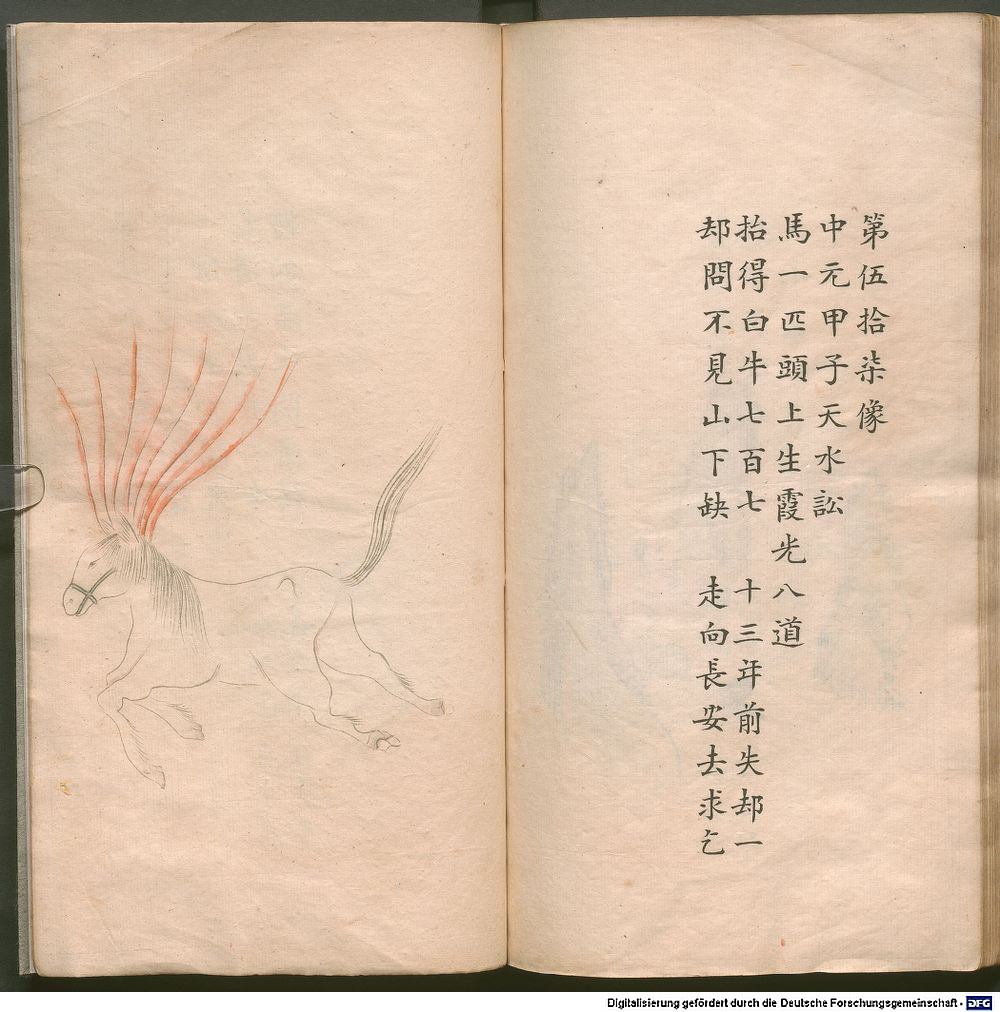 第伍拾柒像
中元甲子天水訟
馬一匹頭上生霞光八道
抬得白牛七百七 十三年前失却一
却問不見山下缺 走向長安去求乞
Digitalisierung gefördert durch die Deutsche Forschungsgemeinschaft - DFG